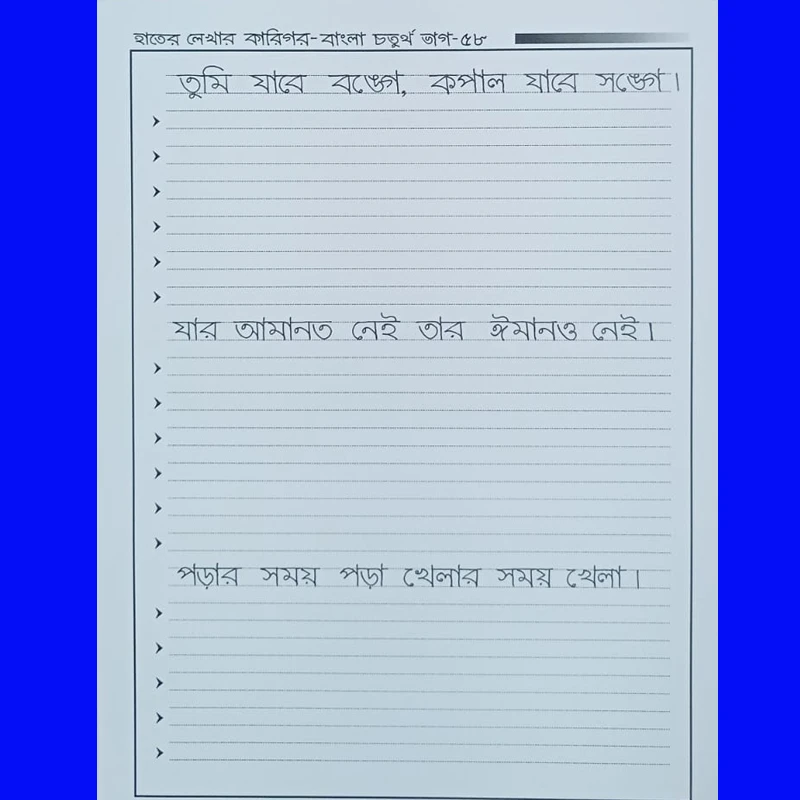 হাতের লেখার কারিগর-বাংলা চতুর্থ ভাগ-৫৮
তুমি যাবে বঙ্গে, কপাল যাবে সঙ্গে।
যার আমানত নেই তার ঈমানও নেই।
পড়ার সময় পড়া খেলার সময় খেলা।